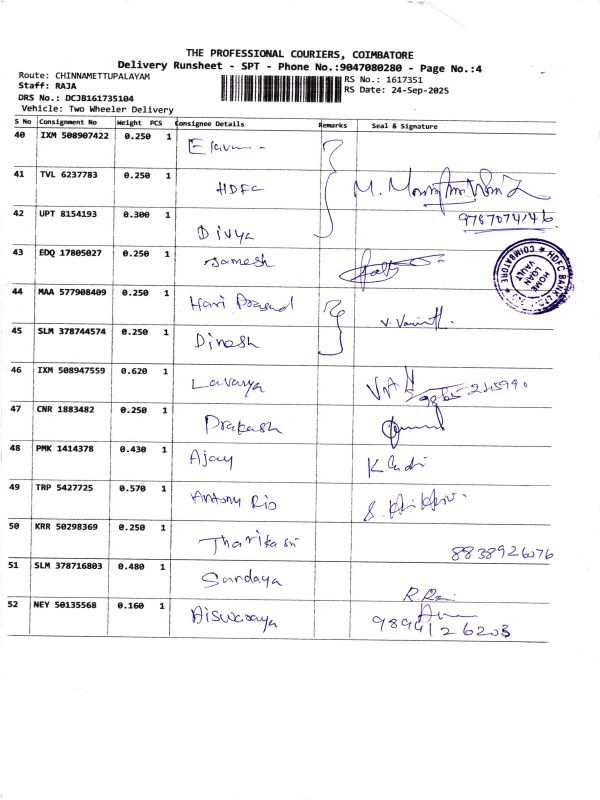 THE PROFESSIONAL COURIERS, COIMBATORE
Delivery Runsheet - SPT - Phone No.:9047080280 - Page No.:4
Route: CHINNAMETTUPALAYAM
RS No.: 1617351
Staff: RAJA
RS Date: 24-Sep-2025
DRS No.: DCJB161735104
Vehicle: Two Wheeler Delivery
S No Consignment No Weight PCS Consignee Details Remarks Seal & Signature
40 IXM 508907422 0.250 1
41 TVL 6237783 0.250 1 HDFC
42 UPT 8154193 0.300 1 Divya
9787074746
43 EDQ 17805027 0.250 1 Jamesh
COIMBATORE HDFC BANK LTD
HOME LOAN VAULT
44 MAA 577908409 0.250 1 Hari Prasad
45 SLM 378744574 0.250 1 Dinesh
46 IXM 508947559 0.620 1 Lavanya
47 CNR 1883482 0.250 1 Prakash
48 PMK 1414378 0.430 1 Ajay
49 TRP 5427725 0.570 1 Antony Rio
50 KRR 50298369 0.250 1
8838926076
51 SLM 378716803 0.480 1 Sandaya
R.
52 NEY 50135568 0.160 1 Aiswaraya
9894126203